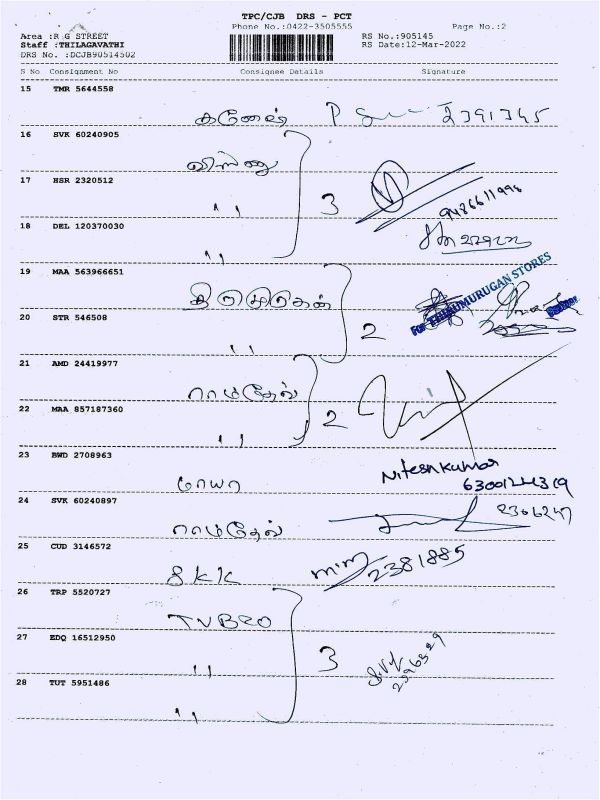 TPC/CJB DRS - PCT
Phone No.:0422-3505555
Page No.:2
Area :R G STREET
RS No.:905145
Staff :THILAGAVATHI
RS Date:12-Mar-2022
DRS No. :DCJB90514502
S No Consignment No Consignee Details Signature
15 TMR 5644558
கணேஷ் 2391345
16 SVK 60240905
விஸ்ணு
17 HSR 2320512
" 3
18 DEL 120370030
"
19 MAA 563966651
திருமுருகன்
For THIRUMURUGAN STORES
20 STR 546508
" 2
21 AMD 24419977
ராமதேவ்
22 MAA 857187360
" 2
23 BWD 2708963
மாயா Niteshkumar
24 SVK 60240897
ராமதேவ்
25 CUD 3146572
SKK 2381885
26 TRP 5520727
27 EDQ 16512950
" 3
28 TUT 5951486
"